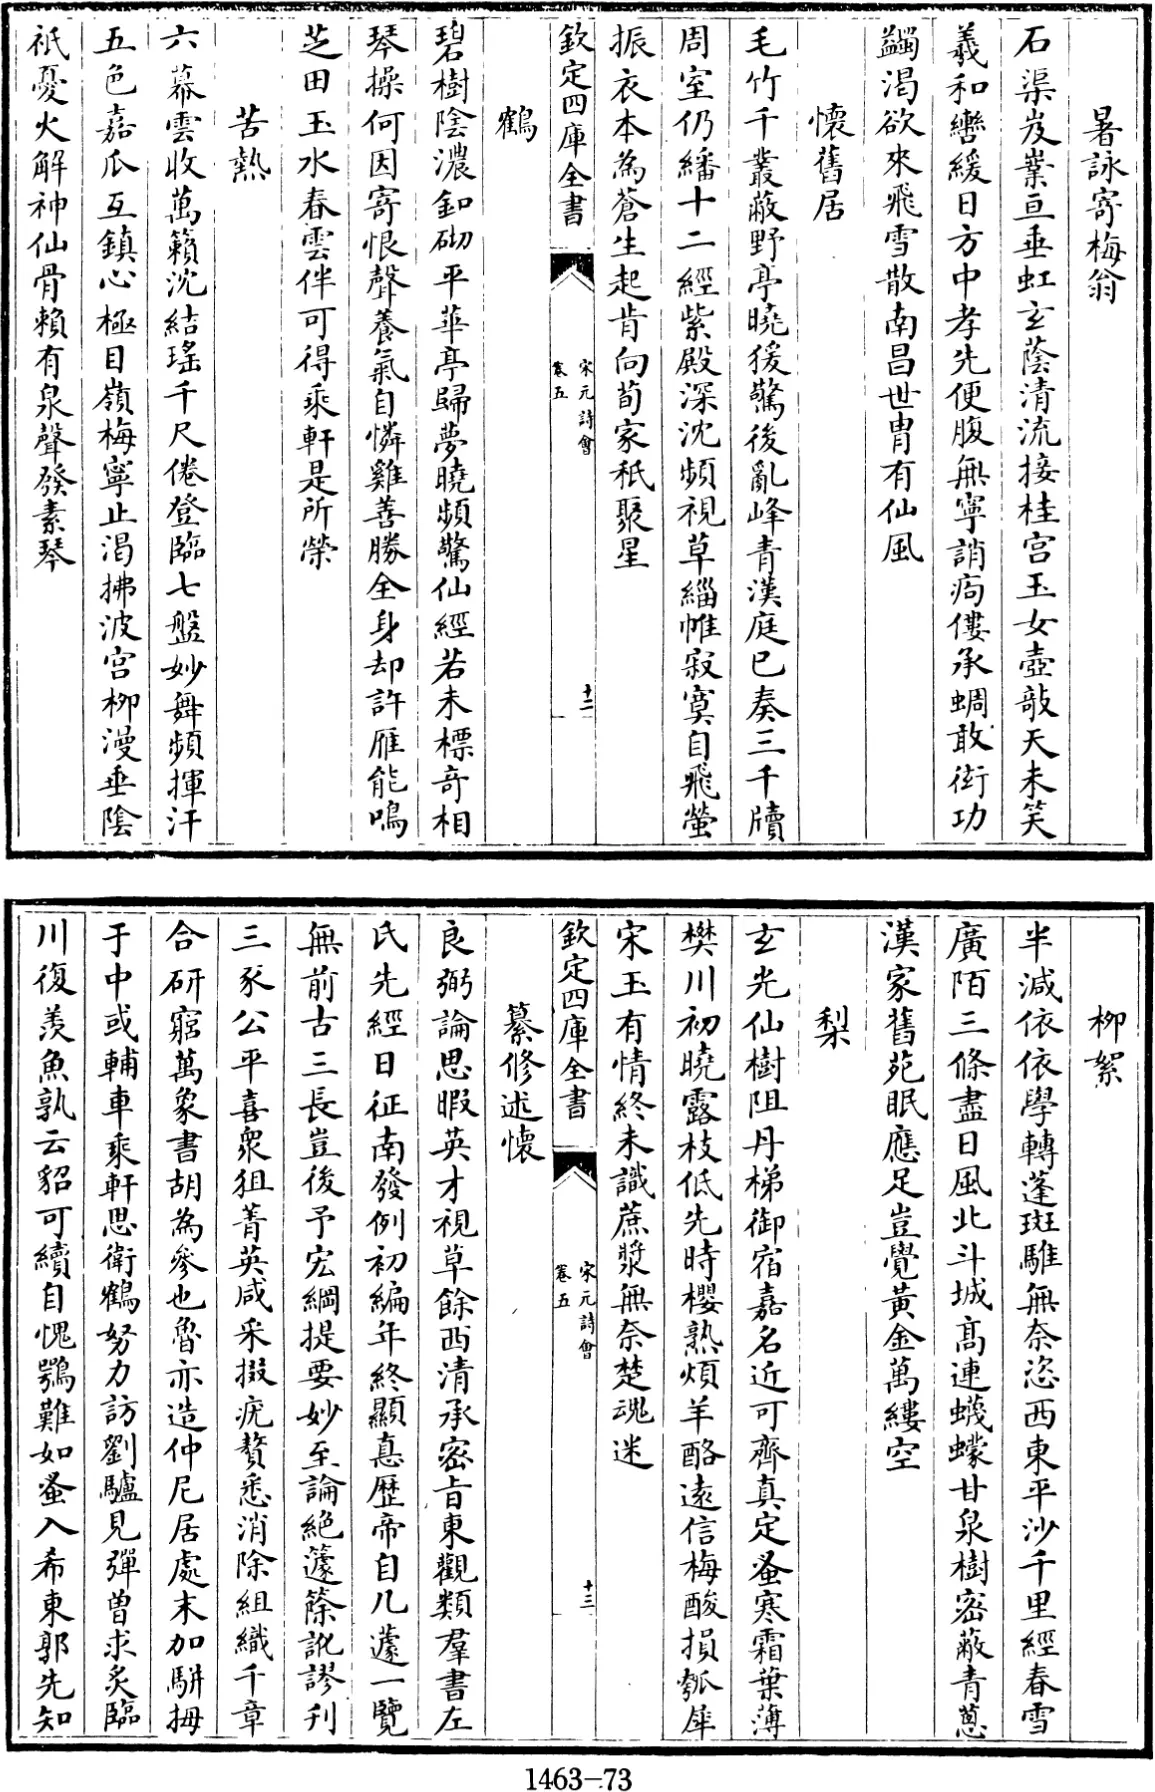 暑詠寄梅翁
石渠岌嶪亘垂虹玄蔭清流接桂宫玉女壺敲天未笑
羲和轡緩日方中孝先便腹無寧誚痀僂承蜩敢衒功
蠲渴欲來飛雪散南昌世胄有仙風
懷舊居
毛竹千叢蔽野亭曉猨驚後亂峰青漢庭已奏三千牘
周室仍繙十二經紫殿深沈頻視草緇帷寂寞自飛螢
振衣本為蒼生起肯向荀家秖聚星
欽定四庫全書
宋元詩會
卷五
十二
鶴
碧樹陰濃釦砌平華亭歸夢曉頻驚仙經若未標奇相
琴操何因寄恨聲養氣自憐雞善勝全身却許雁能鳴
芝田玉水春雲伴可得乘軒是所榮
苦熱
六幕雲收萬籟沈結瑤千尺倦登臨七盤妙舞頻揮汗
五色嘉瓜互鎮心極目嶺梅寧止渴拂波宫柳漫垂陰
祇憂火解神仙骨賴有泉聲發素琴
柳絮
半減依依學轉蓬斑騅無奈恣西東平沙千里經春雪
廣陌三條盡日風北斗城髙連蠛蠓甘泉樹密蔽青蔥
漢家舊苑眠應足豈覺黄金萬縷空
梨
玄光仙樹阻丹梯御宿嘉名近可齊真定蚤寒霜葉薄
樊川初曉露枝低先時櫻熟煩羊酪遠信梅酸損瓠犀
宋玉有情終未識蔗漿無奈楚魂迷
欽定四庫全書
宋元詩會
卷五
十三
纂修述懷
良弼論思暇英才視草餘西清承密旨東觀類羣書左
氏先經日征南發例初編年終顯惪歴帝自几蘧一覽
無前古三長豈後予宏綱提要妙至論絶籧篨訛謬刋
三豕公平喜衆狙菁英咸采掇疣贅悉消除組織千章
合研窮萬象書胡為參也魯亦造仲尼居處末加駢拇
于中或輔車乘軒思衛鶴努力訪劉驢見彈曽求炙臨
川復羨魚孰云貂可續自愧鶚難如蚤入希東郭先知
1463—73